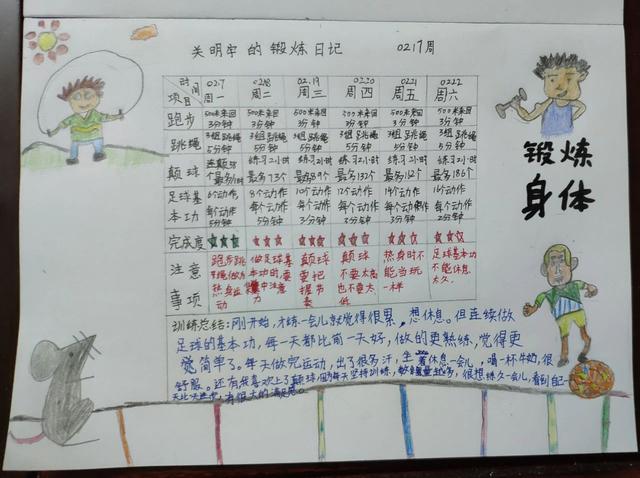 关明宇的锻炼日记 0217周
时间 项目 0217 周一 0218 周二 0219 周三 0220 周四 0221 周五 0222 周六
跑步 500米来回 3分钟 500米来回 3分钟 500米来回 3分钟 500米来回 3分钟 500米来回 3分钟 500米来回 3分钟
跳绳 3组跳绳 5分钟 3组跳绳 5分钟 3组跳绳 5分钟 3组跳绳 5分钟 3组跳绳 5分钟 3组跳绳 5分钟
颠球 练习2小时 最多73个 练习2小时 最多89个 练习2小时 最多132个 练习2小时 最多142个 练习2小时 最多186个
足球基本功 6个动作 每个动作 5分钟 8个动作 每个动作 5分钟 10个动作 每个动作 3分钟 12个动作 每个动作 3分钟 14个动作 每个动作 3分钟 16个动作 每个动作 2分钟
完成度 ★★★ ★★★ ★★★ ★★★ ★★★ ★★★
注意事项 跑步跳绳做为热身运动 做足球基本功时要集中注意力 颠球要把握节奏 颠球不要太高也不要太低 热身时不能当玩一样 足球基本功不能休息太久.
锻炼
身体
训练总结：刚开始，才练一会儿就觉得很累，想休息。但连续做
足球的基本功，每一天都比前一天好，做的更熟练，觉得更
简单了。每天做完运动，出了很多汗，坐着休息一会儿，喝一杯牛奶，很
舒服。还有我喜欢上了颠球，因为每天坚持训练，数量越多，很想练久一会儿，看到自己一
天比天进步，有很大的满足感。